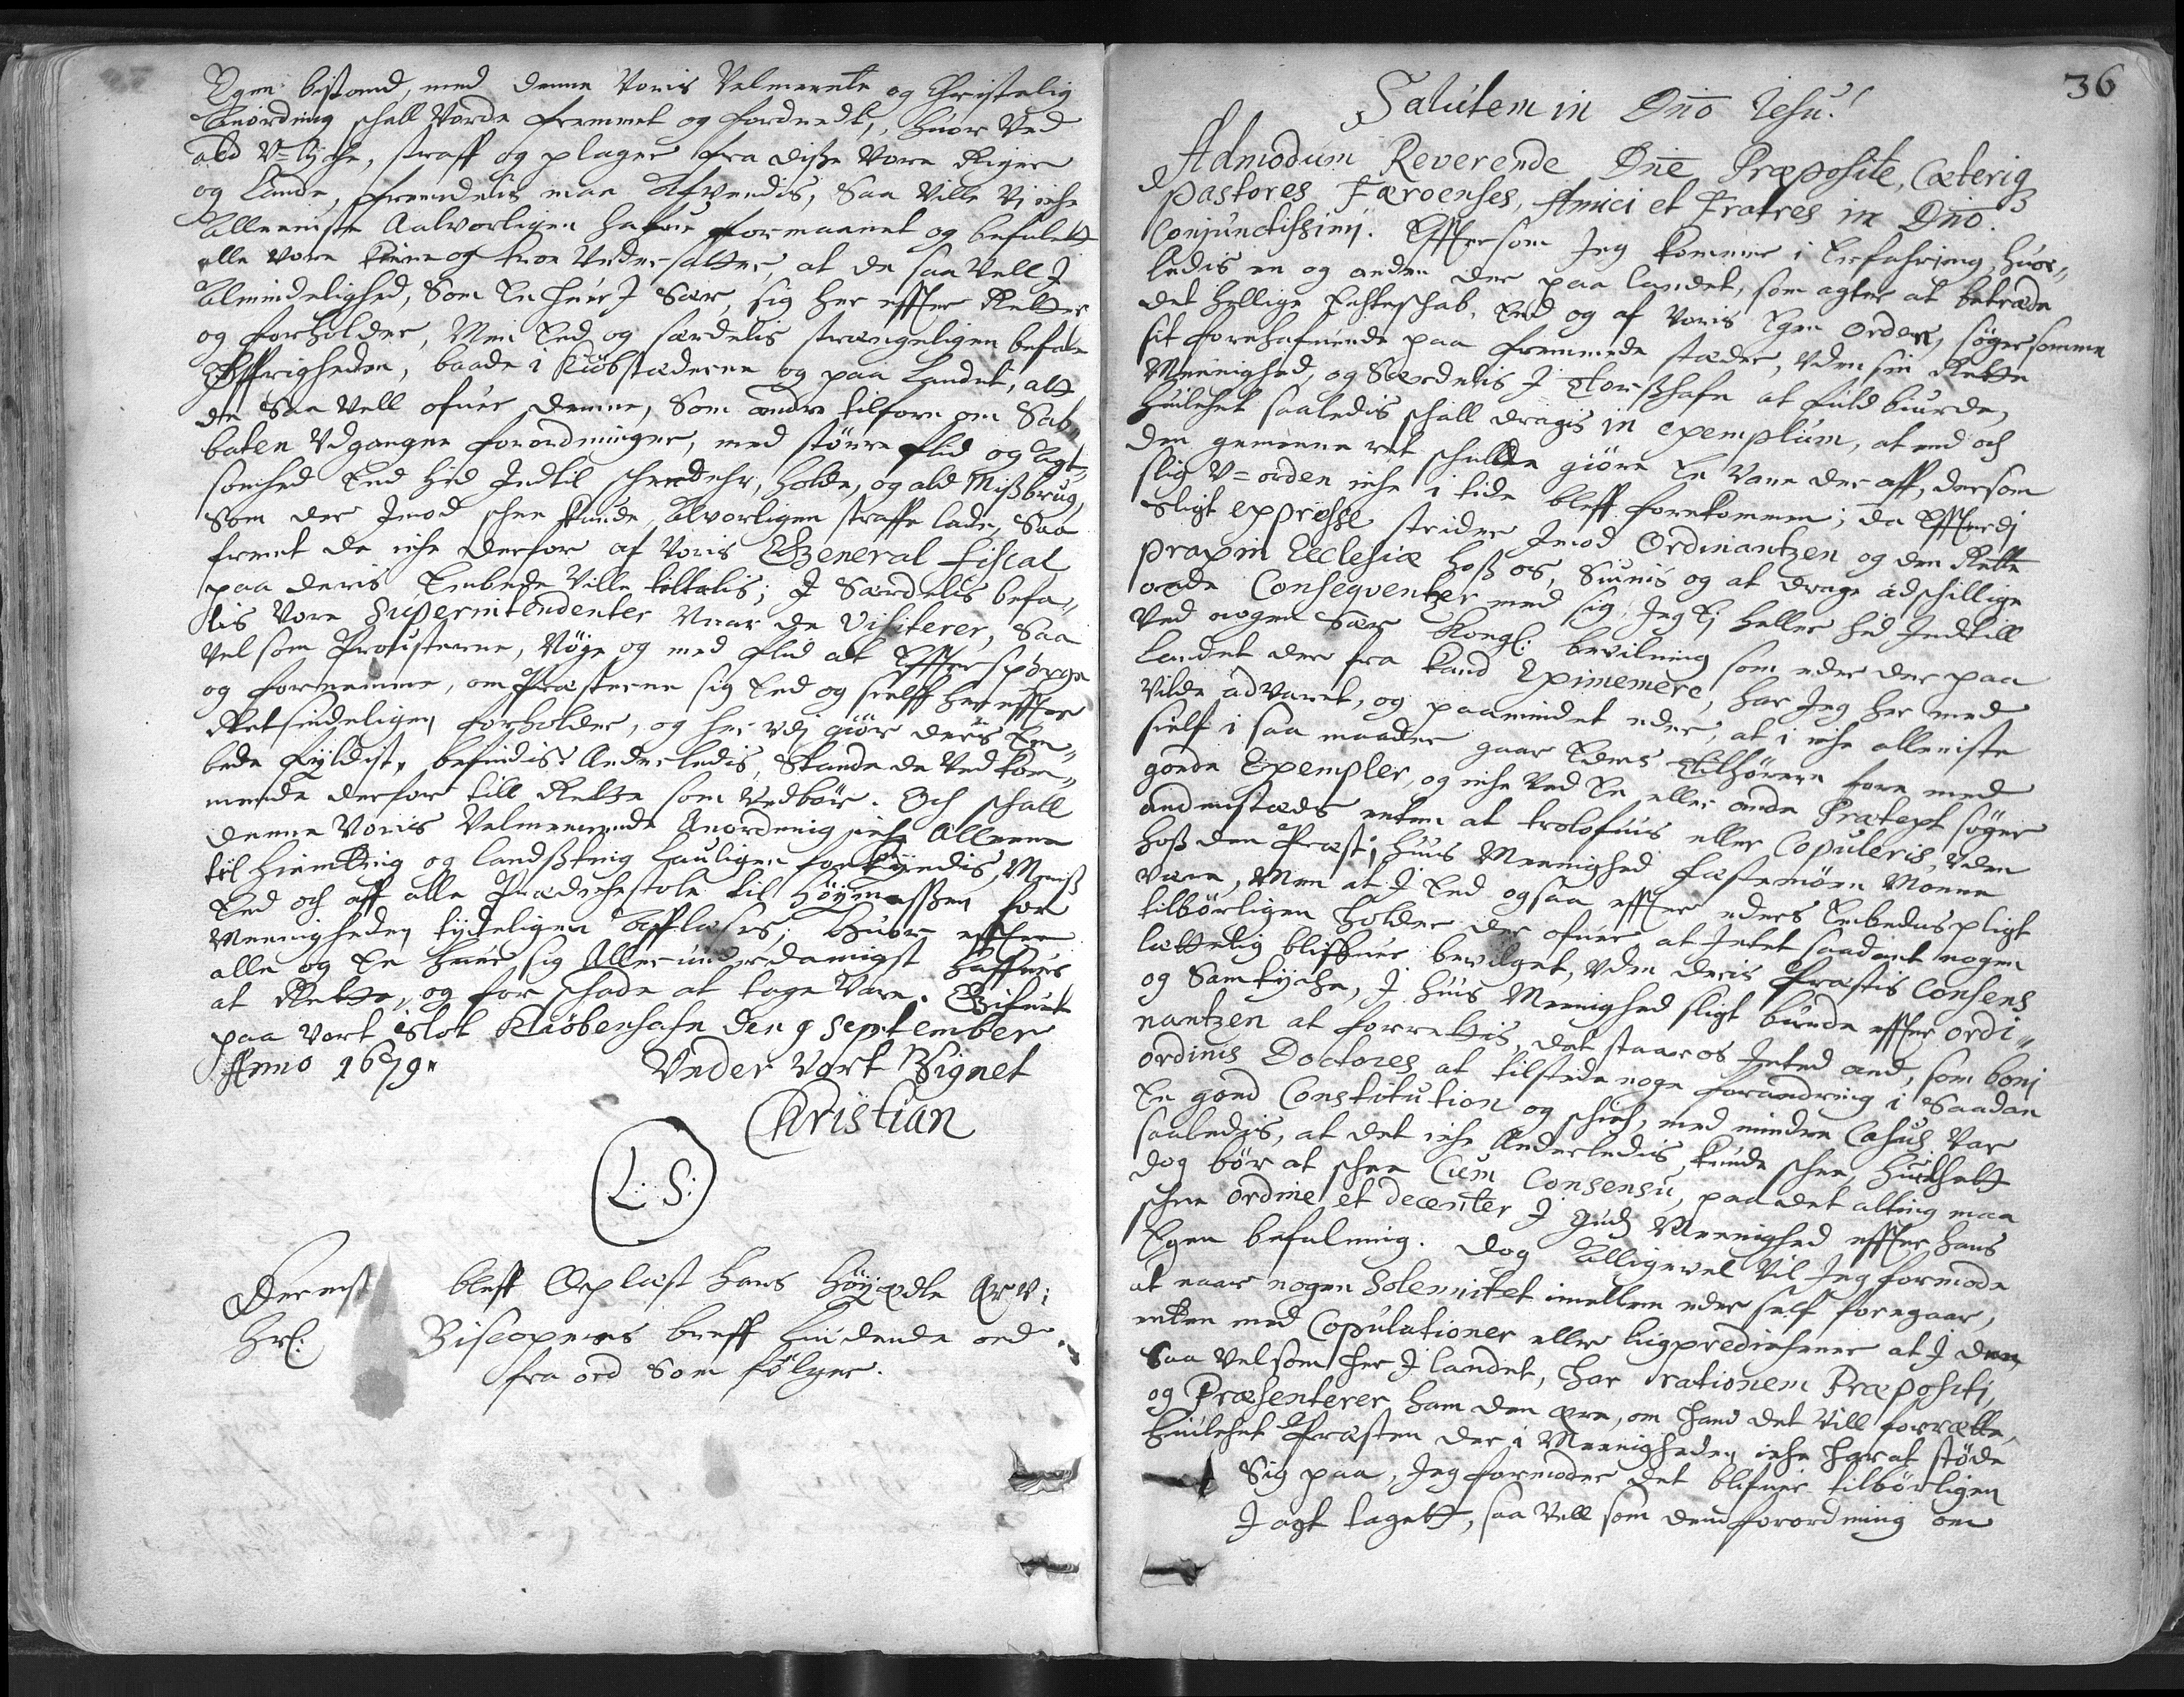 Egen bistand, med denne Voris Velmeente og Christelig
Anordning schall Vorde fremmet og fordredt, huor Ved
ald V=lyche, straff og plager fra disse Vore Riger
og Lande, fremdelis maa Afvendis, Saa Ville Vj iche
Alleeniste Aalvorligen hafue formaanet og befalett
alle Vore kiere og troe Vndersatter, at de saa Vell J
Almindelighed, Som En huer J Sær, sig her effter Retter
og forholder, Men End og særdelis strængeligen befale
Øffrigheden, baade i Kiøbstæderne og paa Landet, att
de Saa Vell ofuer denne, Som andre tilforn om Sab,,
baten Vdgangne forordninger, med større flid og Agt,,
somhed End hid Indtil scheedt ehr, holde, og ald Mißbrug,
Som der Jmod schee kunde Alvorligen straffe lade, Saa
fremt de iche derfor af Voris General Fiscal
paa deris Embede Ville tiltalis; J Særdelis befa,,
lis Vore Superintendenter Naar de Visiterer, Saa
Vel som Prousterne, Nøye og med flid at Effterspørge
og fornemme, om Præsterne sig End og sielff her effter
Retsindeligen forholder, og her vdj giør deris Em,,
bede fyldist, befindis Anderledis, Stande de Vedkom,,
mende derfor till Rette som Vedbør. Och schall
denne Voris Velmeenende Anordning iche Alleene
til hiemting og landßting Lauligen forkyndis, Men
End och aff alle Prædichestole til Høymessen for
Meenigheden tydeligen Afflæses; Huor effter
alle og En huer sig Allerunderdanigst hafuer
at Rette, og for schade at tage Vare. Gifuet
paa Vort Slot Kiøbenhafn den 9 September
Anno 1679.
Vnder Vort Signet
Christian
L: S:
Dernest bleff Oplæst hans Høyædle
Hr: Biscopens breff liudende ord
fra ord Som følger.
36
Salutem in Dn̅o Jesu!
Admodum Reverende Dn̅e Præposite, Cæteriq
Pastores Færoenses, Amici et Fratres in Dn̅o
Conjunctissimj. Effter som Jeg kommer i Erfahring, huor,,
ledis en og anden der paa landet, som agter at betræde
det hellige Echteschab, End og af Voris Egen Orden, søger somme
sit forehafuende paa fremmede stæder, Vden sin Rette
Meenighed, og Særdelis J Torßhafn at fuldbiurde,
huilchet saaledis schall dragis in exemplum, at end och
den gemeene ret schulle giøre En Vane der aff, dersom
slig V=orden iche i tide bleff forekommen; da Efftterdj
Sligt expresse strider Jmod Ordinantzen og den Rette
praxin Ecclesiæ hoß os, Siunis og at drage adschillige
onde Conseqventzer med sig, Jeg Ej heller hid Indtill
Ved nogen Sær Kongl: bevilning som eder der paa
Landet der fra kand Eximere, har Jeg her med
Vilde advaret, og paamindet eder, at i iche alleeniste
sielf i saa maader gaar Eders Tilhørere fore med
goede Exempler, og iche Ved En eller anden Prætext søger
andenstæds enten at trolofuis eller Copuleris, Vden
hoß den Præst, huis Meenighed fæstemøen Monne
være, Men at J End ogsaa effter eders Embedes pligt
tilbørligen holder der ofuer at Intet saadant nogen
lættelig bliffuer bevilget, Vden deris Præstis Consens
og Samtyche, J huis Meenighed sligt burde effter ordi,,
nantzen at forrettis, det staar os Inted and, som boni
ordinis Doctores at tilstede noge forandring i Saadan
En goed Constitution og schich, med mindre Casus Var
saaledis, at det iche Anderledis kunde schee, huilchett
dog bør at schee Cum Consensu, paa det alting maa
schee ordine et decenter J Guds Meenighed effter hans
Egen befalning. Dog Alligevel Vil Jeg formode
at naar nogen Solennitet imellem eder self foregaar,
enten med Copulationer eller liigprediechener at J der,
Saa Vel som her J landet, har rationem Præpositi,
og Præsenterer ham den ære, om hand det Vill forrætte,
huilchet Præsten der i Meenigheden iche har at støde
Sig paa, Jeg formoder det blifuer tilbørligen
J agt tagett, saa Vell som den forordning om